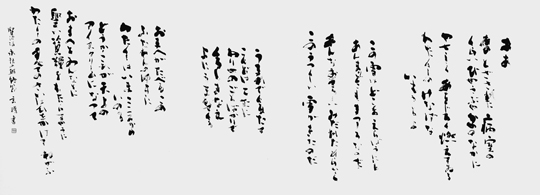 ああ
とざされた病室の
くらいびやうぶやかやのなかに
やさしくあをじろく燃えてゐる
わたくしのけなげな
いもうとよ
この雪はどこをえらばうにも
あんまりどこもまつしろなのだ
あんなおそろしいみだれたそらから
このうつくしい雪がきたのだ
うまれでくるたて
こんどはこたに
わりやのごとばかりで
くるしまなあよに
うまれてくる
おまへがたべるこの
ふたわんのゆきに
わたくしはいまこころから
いのる
どうかこれが天上の
アイスクリームになつて
おまへとみんなとに
聖い資糧をもたらすやうに
わたくしのすべてのさいはひをかけてねがふ
賢治 永訣の朝